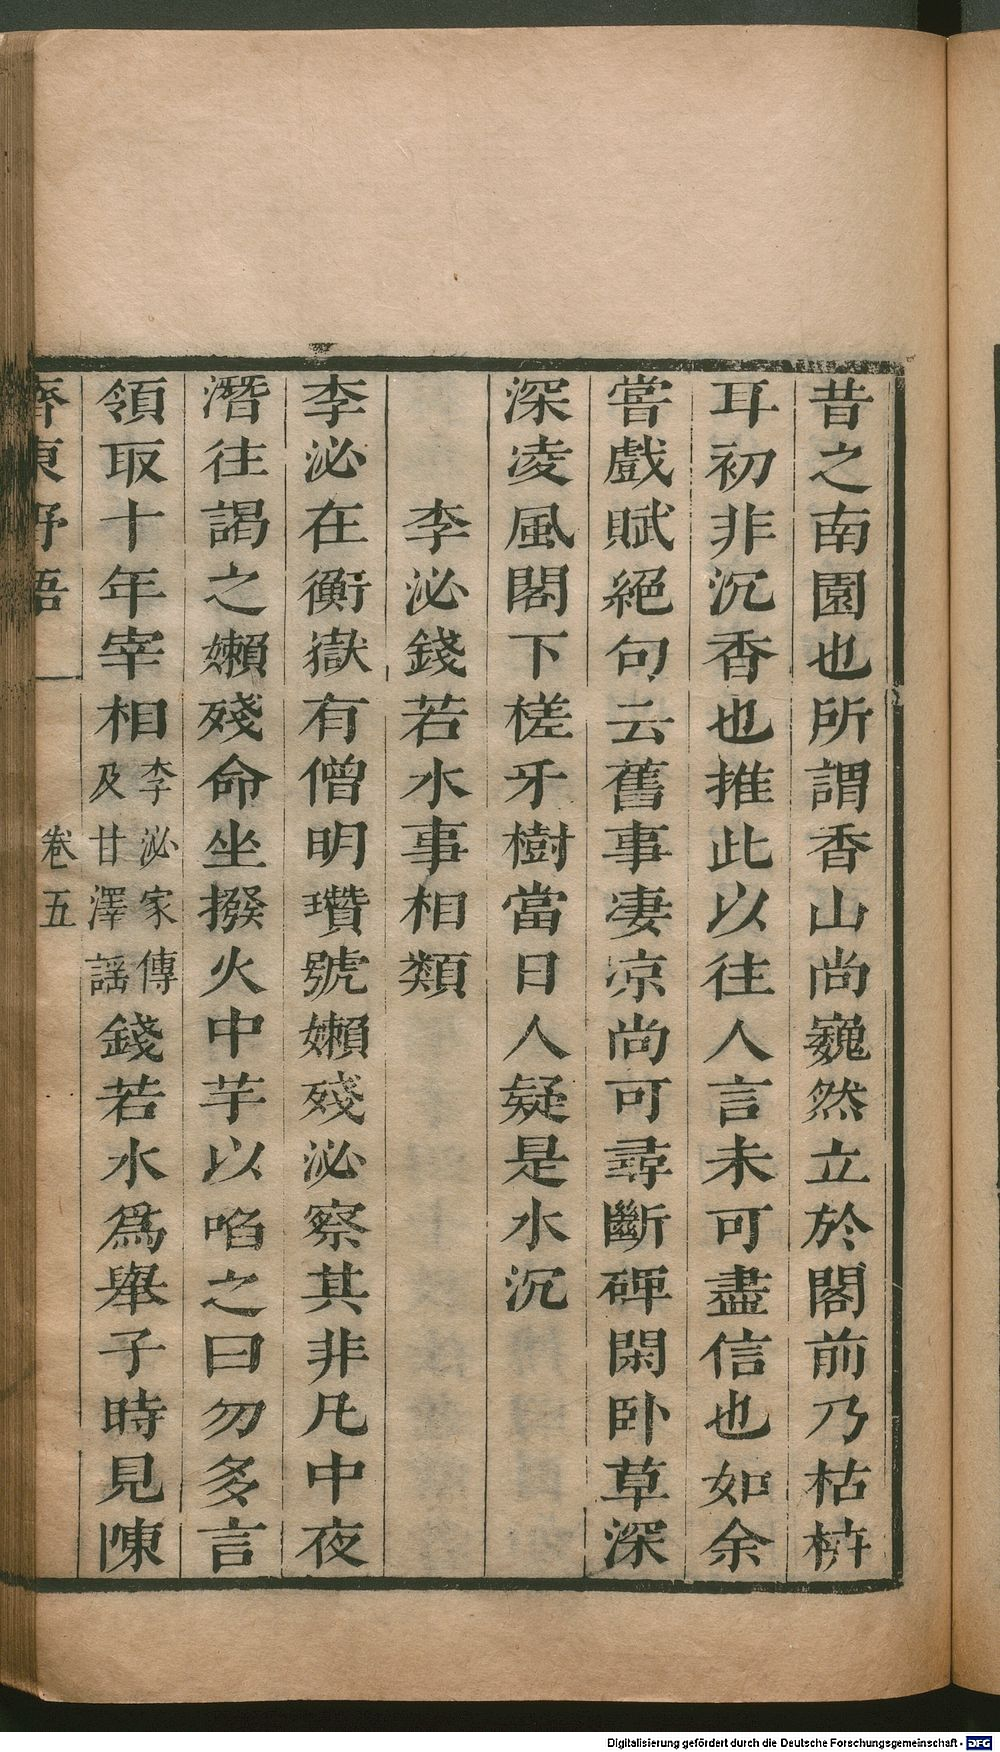 昔之南園也所謂香山尚巍然立於閣前乃枯枿
耳初非沉香也推此以往人言未可盡信也如余
嘗戲賦絕句云舊事凄凉尚可尋斷碑閑卧草深
深凌風閣下槎牙樹當日人疑是水沉
李泌錢若水事相類
李泌在衡嶽有僧明瓚號嬾殘泌察其非凡中夜
潛往謁之嬾殘命坐撥火中芋以啗之曰勿多言
領取十年宰相李泌家傳及甘澤謡錢若水爲舉子時見陳
齊東野語 卷五
Digitalisierung gefördert durch die Deutsche Forschungsgemeinschaft - DFG